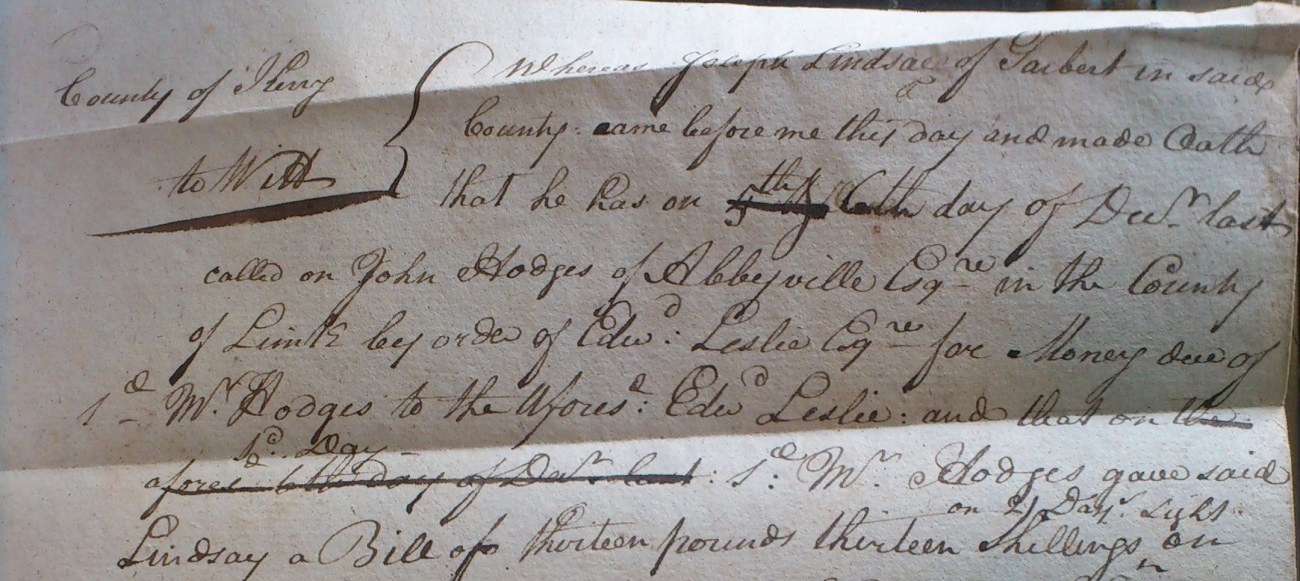 County of Kerry
to Witt
Whereas Joseph Lindsay of Tarbert in said
County: came before me this day and made Oath
that he has on 5th 6th day of Decr. last
called on John Hodges of Abbeyville Esqre in the County
of Limk by order of Edwd: Leslie Esqre for Money due of
sd Mr. Hodges to the afores.d: Edwd Leslie: and that on the
sd. Day
aforesd 6th day of Decr last: sd: Mr. Hodges gave said
on 21 Days Sight
Lindsay a Bill of thirteen pounds thirteen Shillings on